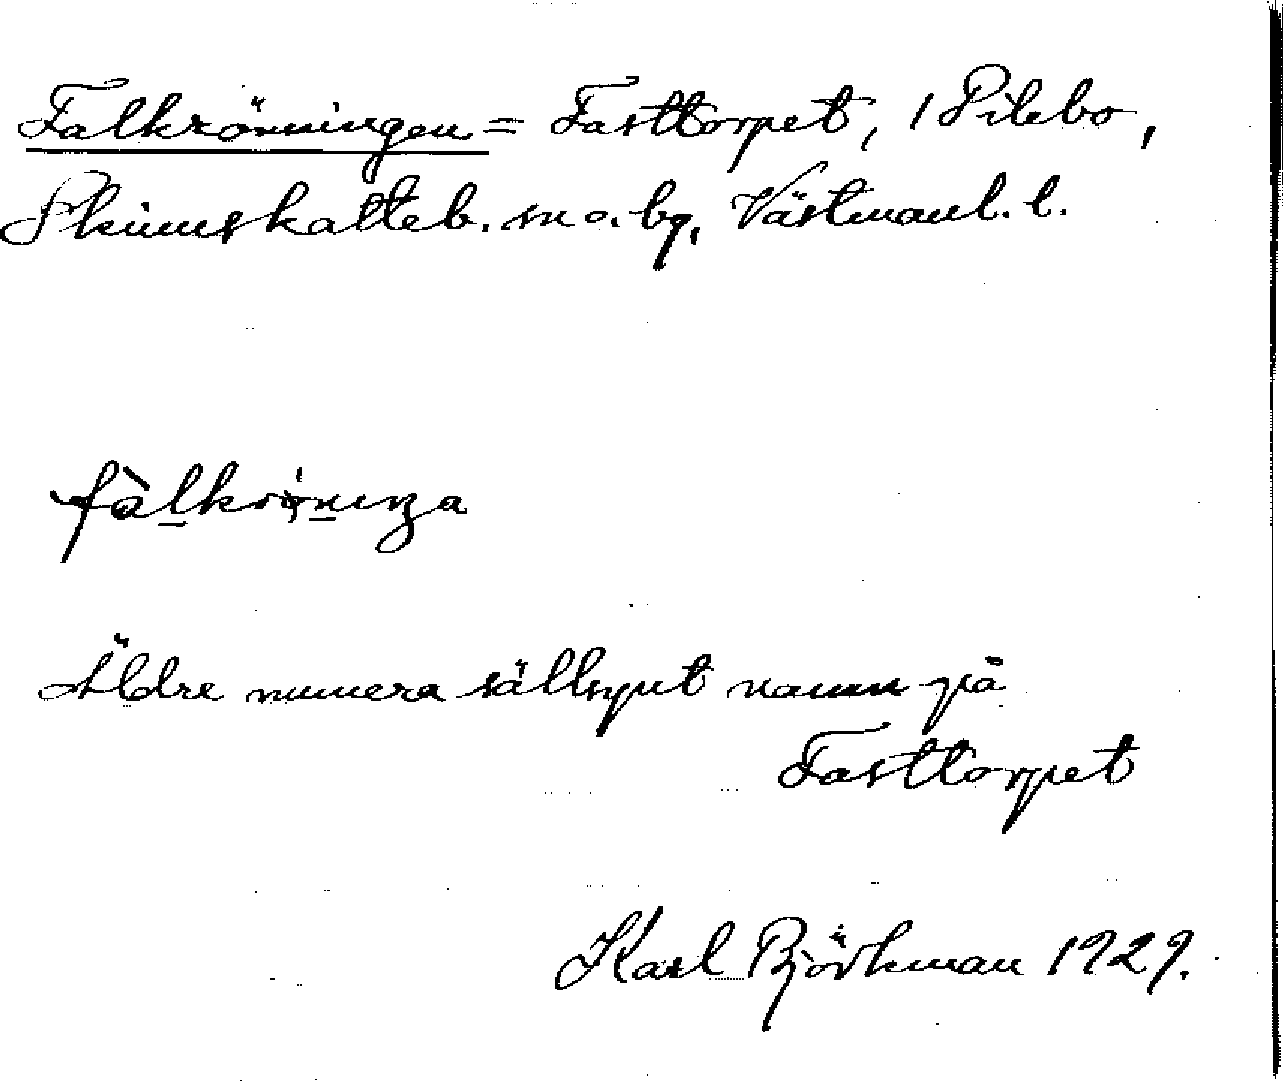 Falkrönningen = Fasttorpet, 1 Pilebo,
Skinnskatteb. sn o. bg, Västmanl. l.
Äldre numera sällsynt namn på
Fasttorpet
Karl Björkman 1929.